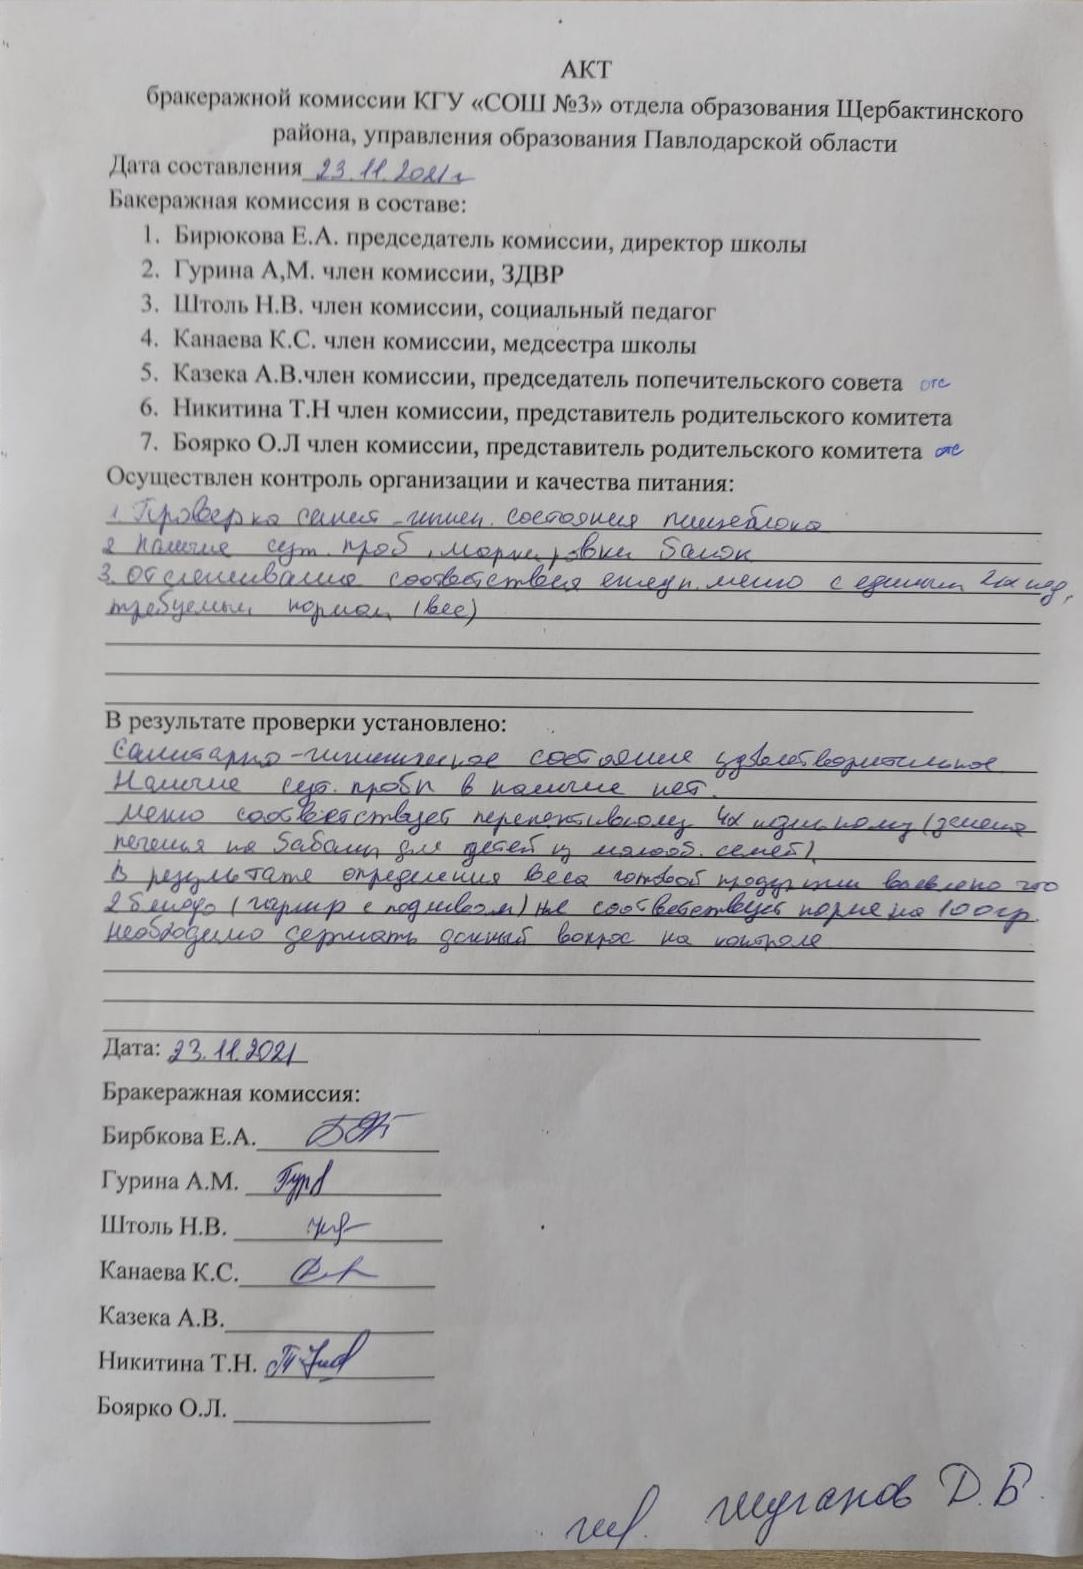 АКТ
бракеражной комиссии КГУ «СОШ №3» отдела образования Щербактинского
района, управления образования Павлодарской области
Дата составления 23.11.2021г
Бакеражная комиссия в составе:
1. Бирюкова Е.А. председатель комиссии, директор школы
2. Гурина А,М. член комиссии, ЗДВР
3. Штоль Н.В. член комиссии, социальный педагог
4. Канаева К.С. член комиссии, медсестра школы
5. Казека А.В.член комиссии, председатель попечительского совета отс
6. Никитина Т.Н член комиссии, представитель родительского комитета
7. Боярко О.Л член комиссии, представитель родительского комитета отс
Осуществлен контроль организации и качества питания:
1. Проверка санит-гигиен. состояния пищеблока
2 Наличие сут. проб, маркировки банок
3. Отслеживание соответствия ежедн. меню с единым 4х нед,
требуемым нормам (вес)
В результате проверки установлено:
Санитарно-гигиеническое состояние удовлетворительное
Наличие сут. пробы в наличие нет.
Меню соответствует перспективному 4х недельному (замена
печенья на для детей из малооб. семей)
В результате определения веса готовой продукции выявлено что
2 блюдо (гарнир с подливом) не соответствует норме на 100гр.
необходимо держать данный вопрос на контроле
Дата: 23.11.2021
Бракеражная комиссия:
Бирбкова Е.А.
Гурина А.М. Гур
Штоль Н.В.
Канаева К.С.
Казека А.В.
Никитина Т.Н.
Боярко О.Л.
Жуганов Д.Б.